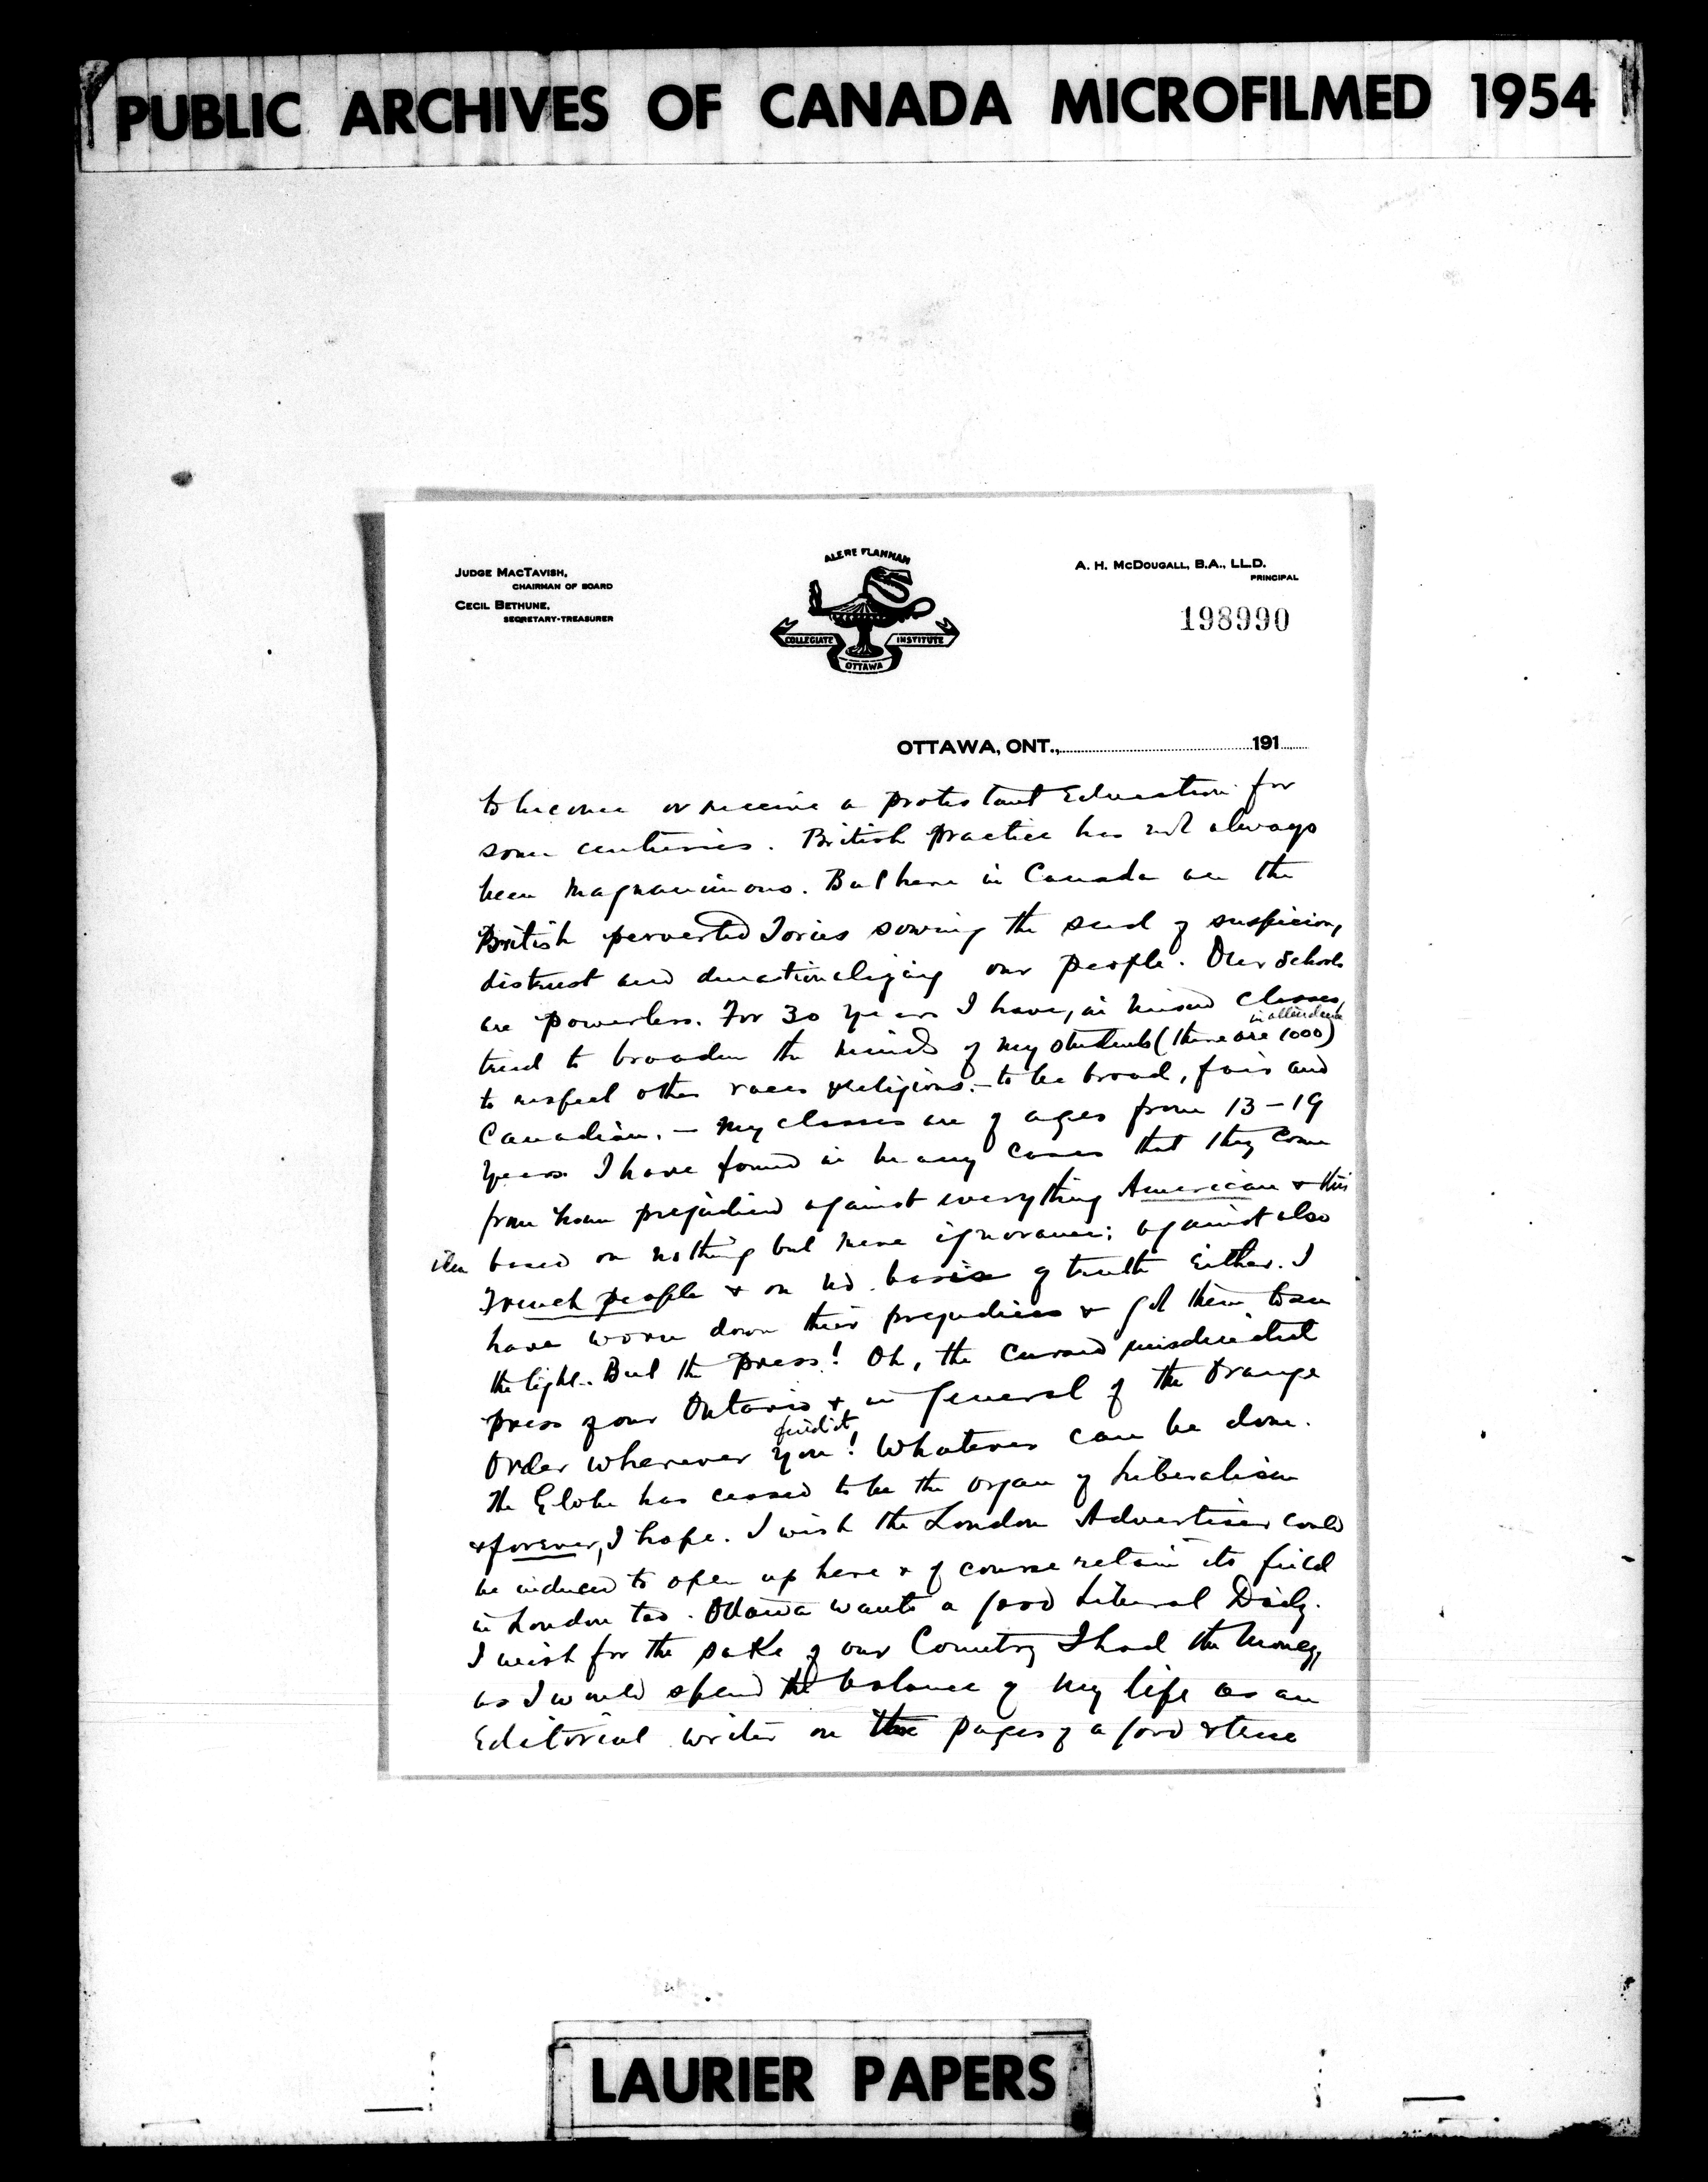 PUBLIC ARCHIVES OF CANADA MICROFILMED 1954
JUDGE MACTAVISH,
CHAIRMAN OF BOARD
CECIL BETHUNE,
SECRETARY-TREASURER
ALERE FLAMMAM
COLLEGIATE INSTITUTE
OTTAWA
A. H. MCDOUGALL, B.A., LL.D.
PRINCIPAL
198990
OTTAWA, ONT., 191
to become or receive a protestant Education for
some centuries. British practice has not always
been magnanimous. But here in Canada are the
British perverted Tories sowing the seed of suspicion,
distrust and denationalizing our people. Our schools
are powerless. For 30 years I have, in mixed classes,
in attendance
tried to broaden the minds of my students (there are 1000)
to respect other races & religions. - to be broad, fair and
Canadian. - My classes are of ages from 13-19
years. I have found in many cases that they come
from home prejudiced against everything American & this
idea based on nothing but mere ignorance; against also
French people & on no basis of truth either. I
have worn down their prejudices & got them to see
the light. But the press! Oh, the cursed
press of our Ontario & in general of the Orange
find it
Order wherever you! Whatever can be done.
The Globe has ceased to be the organ of Liberalism
& forever, I hope. I wish the London Advertiser could
be induced to open up here & of course retain its field
in London too. Ottawa wants a good Liberal Daily.
I wish for the sake of our Country I had the money,
as I would spend the balance of my life as an
Editorial writer on the pages of a good & true
LAURIER PAPERS